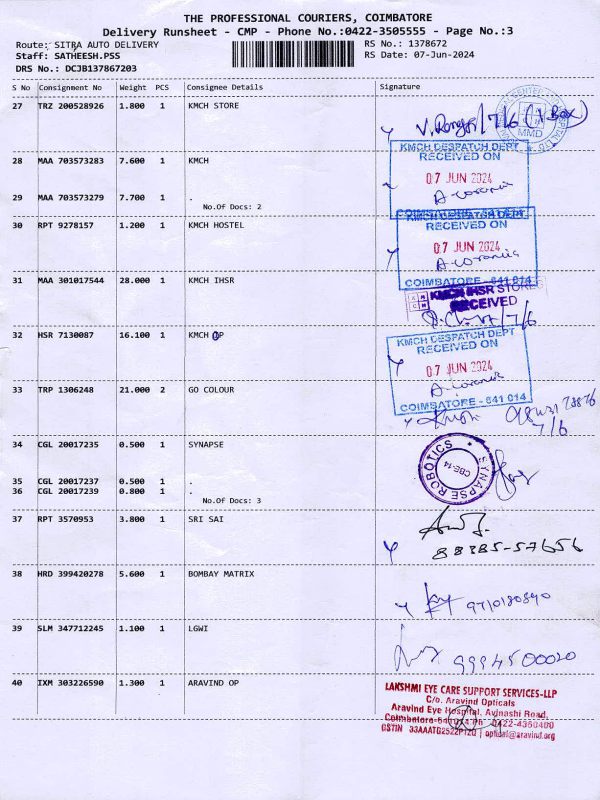 THE PROFESSIONAL COURIERS, COIMBATORE
Delivery Runsheet - CMP - Phone No.:0422-3505555 - Page No.:3
Route: SITRA AUTO DELIVERY
RS No.: 1378672
Staff: SATHEESH.PSS
RS Date: 07-Jun-2024
DRS No.: DCJB137867203
S No Consignment No Weight PCS Consignee Details Signature
27 TRZ 200528926 1.800 1 KMCH STORE
7/6 (1 Box)
MMD
28 MAA 703573283 7.600 1 KMCH
KMCH DESPATCH DEPT
RECEIVED ON
07 JUN 2024
29 MAA 703573279 7.700 1 .
No.Of Docs: 2
30 RPT 9278157 1.200 1 KMCH HOSTEL
RECEIVED ON
07 JUN 2024
COIMBATORE - 641 014
31 MAA 301017544 28.000 1 KMCH IHSR
KMCH IHSR STORES
RECEIVED
7/6
32 HSR 7130087 16.100 1 KMCH OP
KMCH DESPATCH DEPT
RECEIVED ON
07 JUN 2024
COIMBATORE - 641 014
33 TRP 1306248 21.000 2 GO COLOUR
7/6
34 CGL 20017235 0.500 1 SYNAPSE
SYNAPSE ROBOTICS
CBE-14
35 CGL 20017237 0.500 1 .
36 CGL 20017239 0.800 1 .
No.Of Docs: 3
37 RPT 3570953 3.800 1 SRI SAI
88385-57656
38 HRD 399420278 5.600 1 BOMBAY MATRIX
9710180890
39 SLM 347712245 1.100 1 LGWI
9994500020
40 IXM 303226590 1.300 1 ARAVIND OP
LAKSHMI EYE CARE SUPPORT SERVICES-LLP
C/o. Aravind Opticals
Aravind Eye Hospital, Avinashi Road,
Coimbatore-641014 Ph : 0422-4360400
GSTIN 33AAATG2522P1ZQ | optical@aravind.org